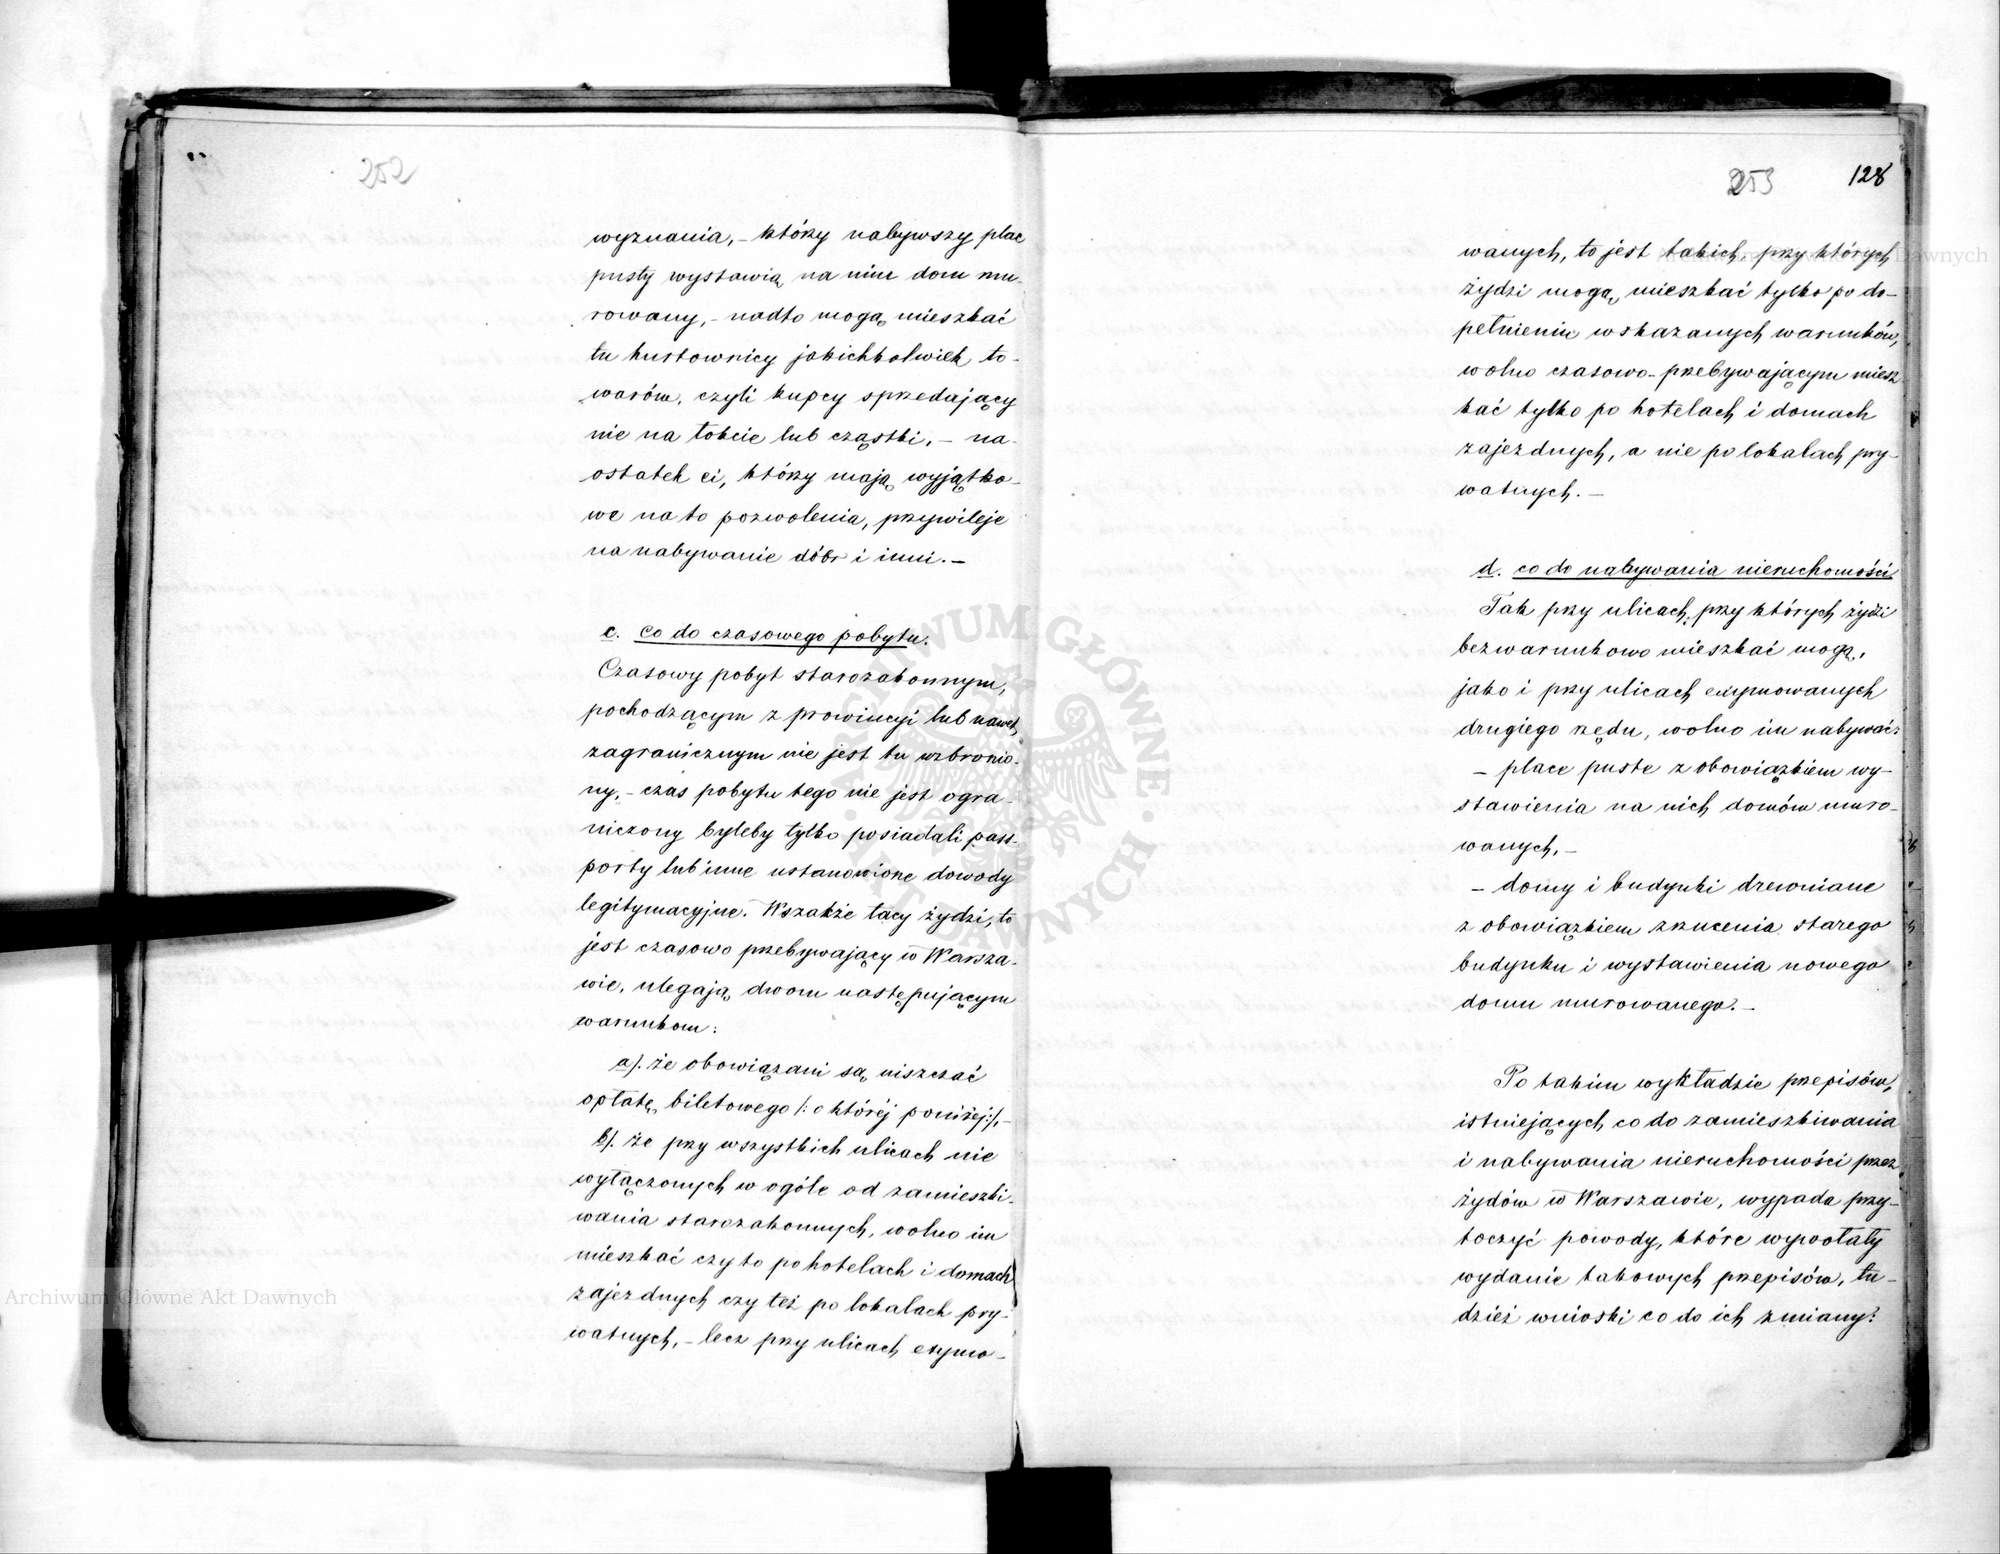 252
wyznania, – którzy nabywszy plac
pusty wystawią na nim dom mu-
rowany, – nadto mogą mieszkać
tu hurtownicy jakichkolwiek to-
warów, czyli kupcy sprzedający
nie na łokcie lub cząstki, – na-
ostatek ci, którzy mają wyjątko-
we na to pozwolenia, przywileje
na nabywanie dóbr i inni. –
c. co do czasowego pobytu.
Czasowy pobyt starozakonnym,
pochodzącym z prowincyi lub nawet
zagranicznym nie jest tu wzbronio-
ny, – czas pobytu tego nie jest ogra-
niczony byleby tylko posiadali pass-
porty lub inne ustanowione dowody
legitymacyjne. Wszakże tacy żydzi, to
jest czasowo przebywający w Warsza-
wie, ulegają dwom następującym
warunkom:
a/. że obowiązani są uiszczać
opłatę biletowego /: o któréj poniżej:/, –
b/. że przy wszystkich ulicach nie
wyłączonych w ogóle od zamieszki-
wania starozakonnych, wolno im
mieszkać czy to po hotelach i domach
zajezdnych czy też po lokalach pry-
watnych, – lecz przy ulicach exymo-
253
128
wanych, to jest takich, przy których
żydzi mogą mieszkać tylko po do-
pełnieniu wskazanych warunków,
wolno czasowo-przebywającym miesz-
kać tylko po hotelach i domach
zajezdnych, a nie po lokalach pry-
watnych. –
d. co do nabywania nieruchomości
Tak przy ulicach, przy których żydzi
bezwarunkowo mieszkać mogą,
jako i przy ulicach exymowanych
drugiego rzędu, wolno im nabywać:
– place puste z obowiązkiem wy-
stawienia na nich domów muro-
wanych, –
– domy i budynki drewniane
z obowiązkiem zrzucenia starego
budynku i wystawienia nowego
domu murowanego. –
Po takim wykładzie przepisów,
istniejących co do zamieszkiwania
i nabywania nieruchomości przez
żydów w Warszawie, wypada przy-
toczyć powody, które wywołały
wydanie takowych przepisów, tu-
dzież wnioski co do ich zmiany.
Archiwum Główne Akt Dawnych
ARCHIWUM GŁÓWNE AKT DAWNYCH